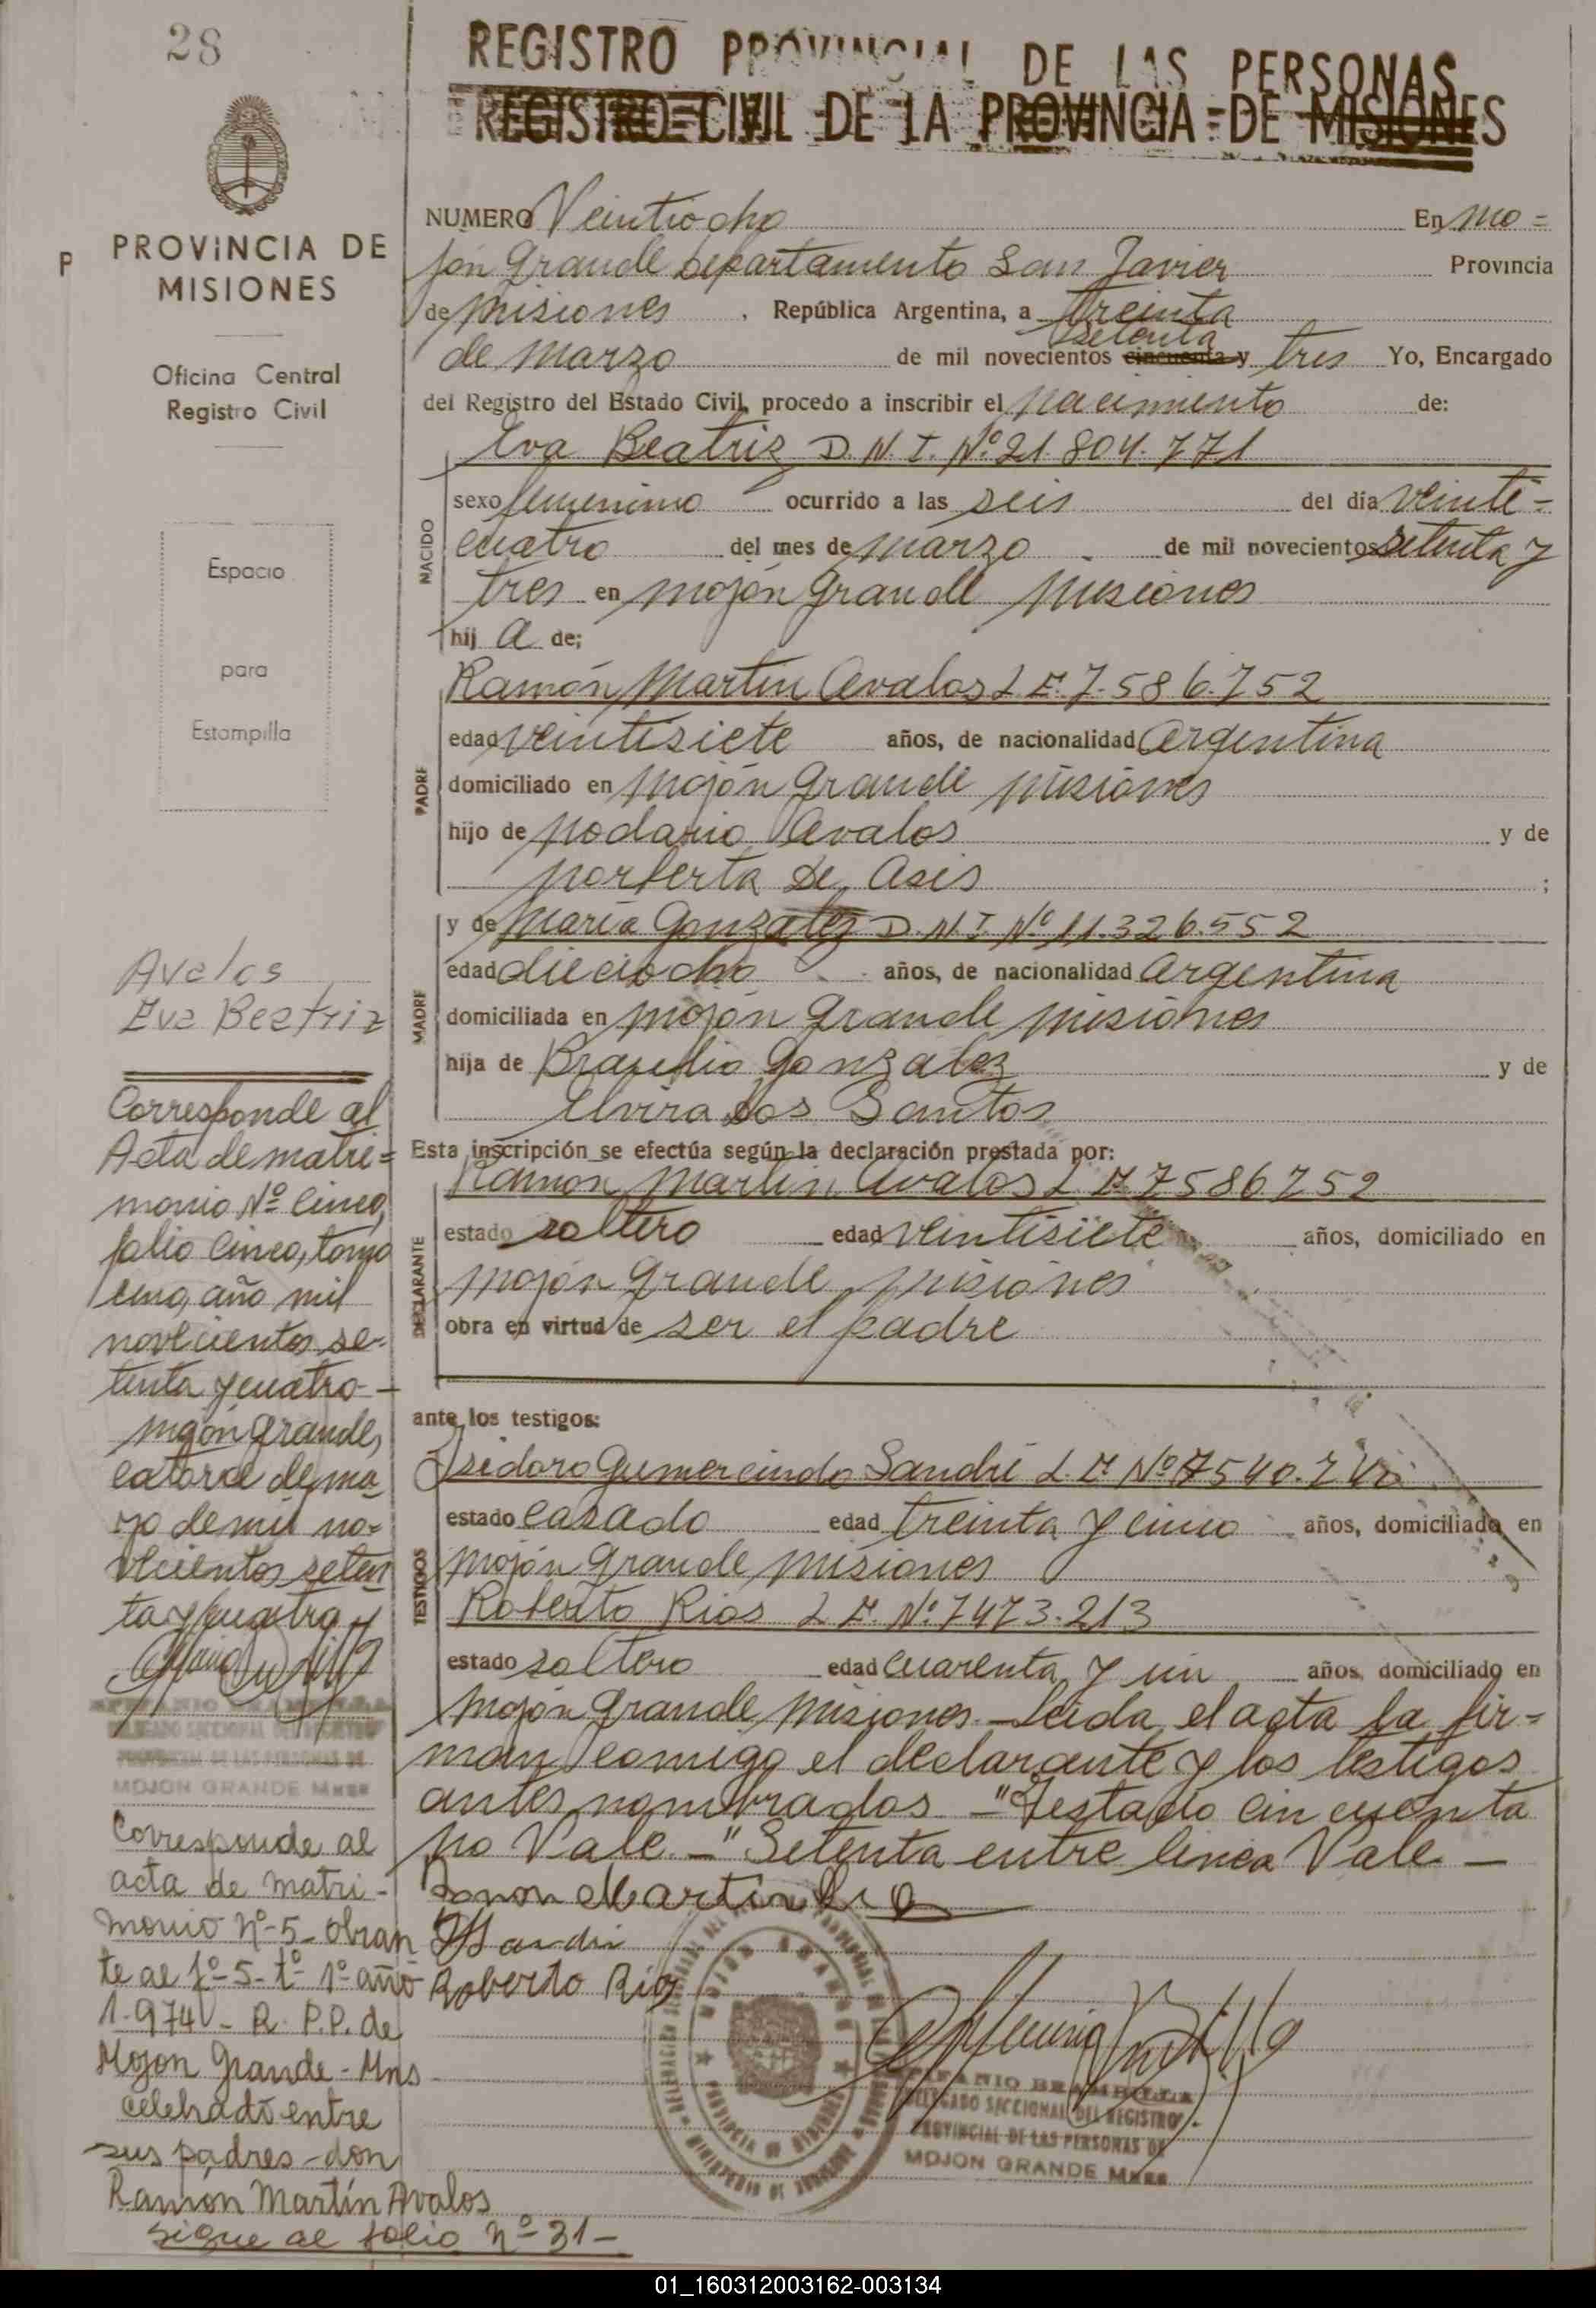 28
REGISTRO PROVINCIAL DE LAS PERSONAS
REGISTRO CIVIL DE LA PROVINCIA DE MISIONES
P
PROVINCIA DE
MISIONES
Oficina Central
Registro Civil
Espacio
para
Estampilla
Avalos
Eva Beatriz
Corresponde al
Acta de matri=
monio Nº Cinco,
folio Cinco, tomo
uno, año mil
novecientos se-
tenta y cuatro -
mojón Grande,
catorce de ma
yo de mil no=
vecientos seten
ta y cuatro
EPIFANIO BRAMBILLA
DELEGADO SECCIONAL DEL REGISTRO
PROVINCIAL DE LAS PERSONAS DE
MOJON GRANDE Mnes
Corresponde al
acta de matri-
monio nº-5- obran
te al fº-5-tº 1º año
1.974 - R. P.P. de
Mojon Grande - Mns
celebrado entre
sus padres - don
Ramon Martín Avalos
sigue al folio nº 31-
NUMERO Veintiocho En mo=
jón Grande Departamento San Javier Provincia
de misiones , República Argentina, a treinta
setenta
de marzo de mil novecientos cincuenta y tres Yo, Encargado
del Registro del Estado Civil, procedo a inscribir el nacimiento de:
Eva Beatriz D.N.I. Nº 21.804.771
NACIDO
sexo femenino ocurrido a las seis del día veinti=
cuatro del mes de marzo de mil novecientos setenta y
tres en mojón grande misiones
hij a de;
PADRE
Ramón Martin Avalos L E. 7.586.752
edad veintisiete años, de nacionalidad Argentina
domiciliado en mojón grande misiones
hijo de nodario Avalos y de
norberta De Asis ;
MADRE
y de maría Gonzalez D.N.I Nº 11.326.552
edad dieciocho años, de nacionalidad Argentina
domiciliada en mojón grande misiones
hija de Braulio Gonzalez y de
Elvira Dos Santos
Esta inscripción se efectúa según la declaración prestada por:
DECLARANTE
Ramon Martin Avalos L E 7586752
estado soltero edad veintisiete años, domiciliado en
mojón grande misiones
obra en virtud de ser el padre
ante los testigos:
TESTIGOS
Isidoro Gumercindo Sandri L.E. Nº 7540.
estado casado edad treinta y cinco años, domiciliado en
mojón Grande misiones
Roberto Rios L E. Nº 7473.213
estado soltero edad cuarenta y un años, domiciliado en
mojón grande misiones - Leida el acta la fir=
man comigo el declarante y los testigos
antes nombrados - "Testado cincuenta
no Vale - "Setenta entre linea Vale -
Ramon Martin
Sandri
Roberto Rios
MOJON GRANDE
PROVINCIA DE MISIONES
EPIFANIO BRAMBILLA
DELEGADO SECCIONAL DEL REGISTRO
PROVINCIAL DE LAS PERSONAS DE
MOJON GRANDE Mnes
01_160312003162-003134